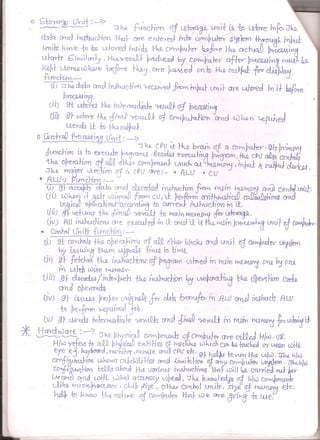 ○ Storage Unit :—> The function of storage unit is to store info. The
data and instruction that are entered into computer system through input
units have to be stored inside the computer before the actual processing
starts. Similarly, the result produced by computer after processing must be
kept somewhere before they are passed onto the output for display.
Function—
(i) The data and instruction received from input unit are stored in it before
processing.
(ii) It stores the intermediate result of processing
(iii) It store the final result of computation and when required
sends it to the output.
○ Central Processing Unit :—> The CPU is the brain of a computer. Its primary
function is to execute programs. Besides executing program, the CPU also controls
the operation of all other component such as memory, input & output devices.
The major section of a CPU are:- • ALU • CU
• ALU Function :—>
(i) It accepts data and decoded instruction from main memory and control unit.
(ii) When it gets signal from CU, it perform arithmetical calculations and
logical operation according to current instruction in it.
(iii) It returns the final result to main memory for storage.
(iv) All instructions are executed in it and it is the main processing unit of computer.
• Control Unit Function :—
(i) It controls the operations of all other blocks and unit of computer system
by issuing them signals time to time.
(ii) It fetches the instructions of program stored in main memory one by one
in step wise manner.
(iii) It decodes/interpret the instruction by separating the operation code
and operands
(iv) It issues proper signals for data transfer in ALU and instruct ALU
to perform required job.
(v) It sends intermediate result and final result in main memory for storing it.
* Hardware :—> The physical components of computer are called H/w. OR
H/w refers to all physical entities of machine which can be touched or seen with
eye e.g. keyboard, monitor, mouse and CPU etc. It helps to run the s/w. The H/w
configuration whose capabilities and limitation of any computer system. The H/w
configuration tells about the various instructions that will be carried out per
second and with what accuracy speed. The knowledge of H/w component
like microprocessor, chip size, other control units, size of memory etc.
help to know the nature of computer that we are going to use.